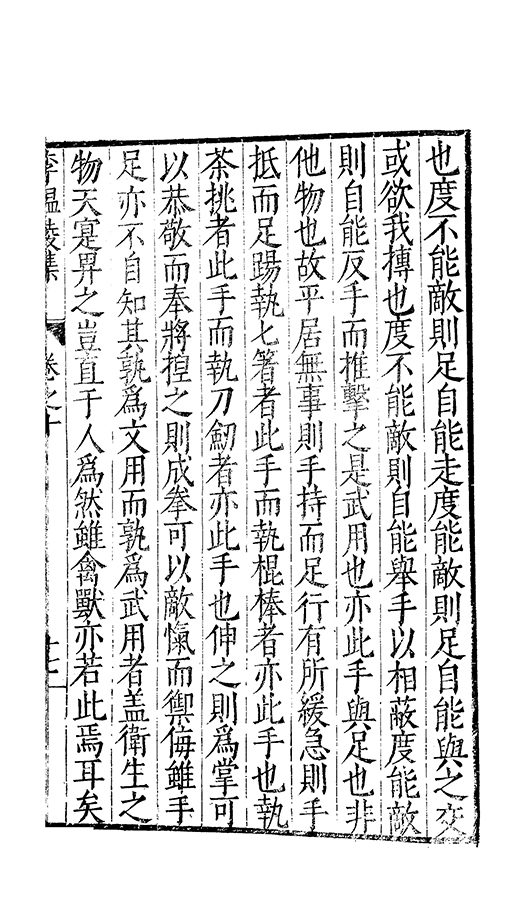 也度不能敵則足自能走度能敵則足自能與之交
或欲我摶也度不能敵則自能舉手以相蔽度能敵
則自能反手而推擊之是武用也亦此手與足也非
他物也故平居無事則手持而足行有所緩急則手
抵而足踢執匕箸者此手而執棍棒者亦此手也執
茶挑者此手而執刀劒者亦此手也伸之則爲掌可
以恭敬而奉將揑之則成拳可以敵愾而禦侮雖手
足亦不自知其孰爲文用而孰爲武用者盖衛生之
物天寔畀之豈直于人爲然雖禽獸亦若此焉耳矣
李温陵集 卷之十 十七